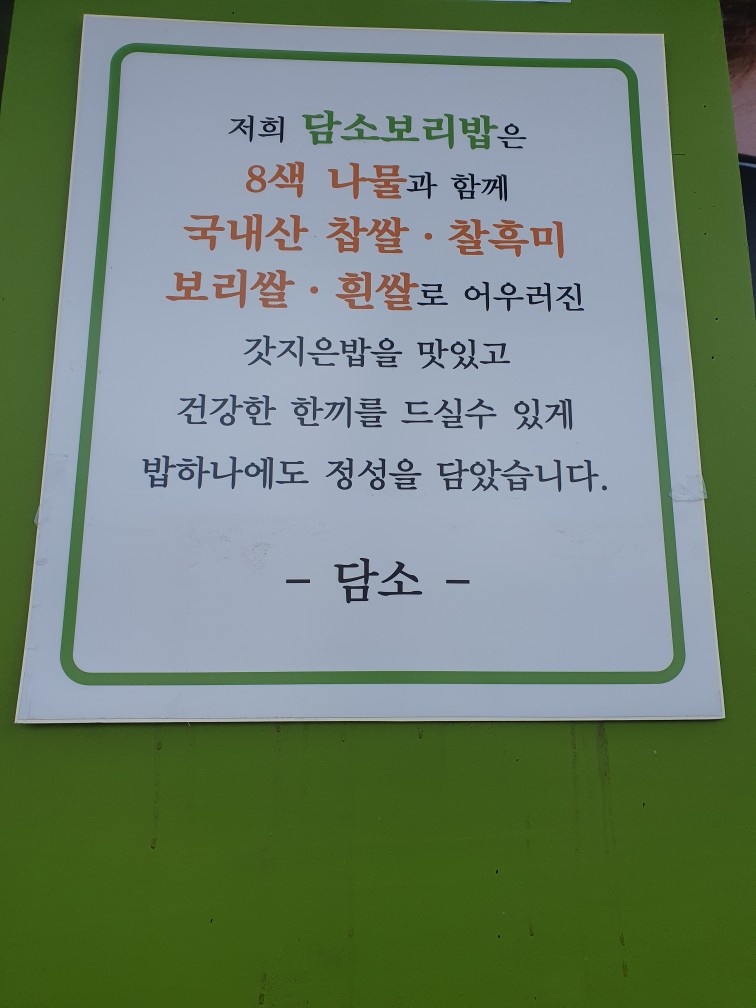 저희 담소보리밥은
8색 나물과 함께
국내산 찹쌀 · 찰흑미
보리쌀 · 흰쌀로 어우러진
갓지은밥을 맛있고
건강한 한끼를 드실수 있게
밥하나에도 정성을 담았습니다.
- 담소 -